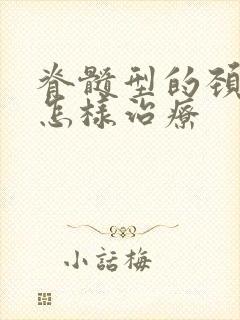 脊髓型的頚
怎樣治療
小話梅